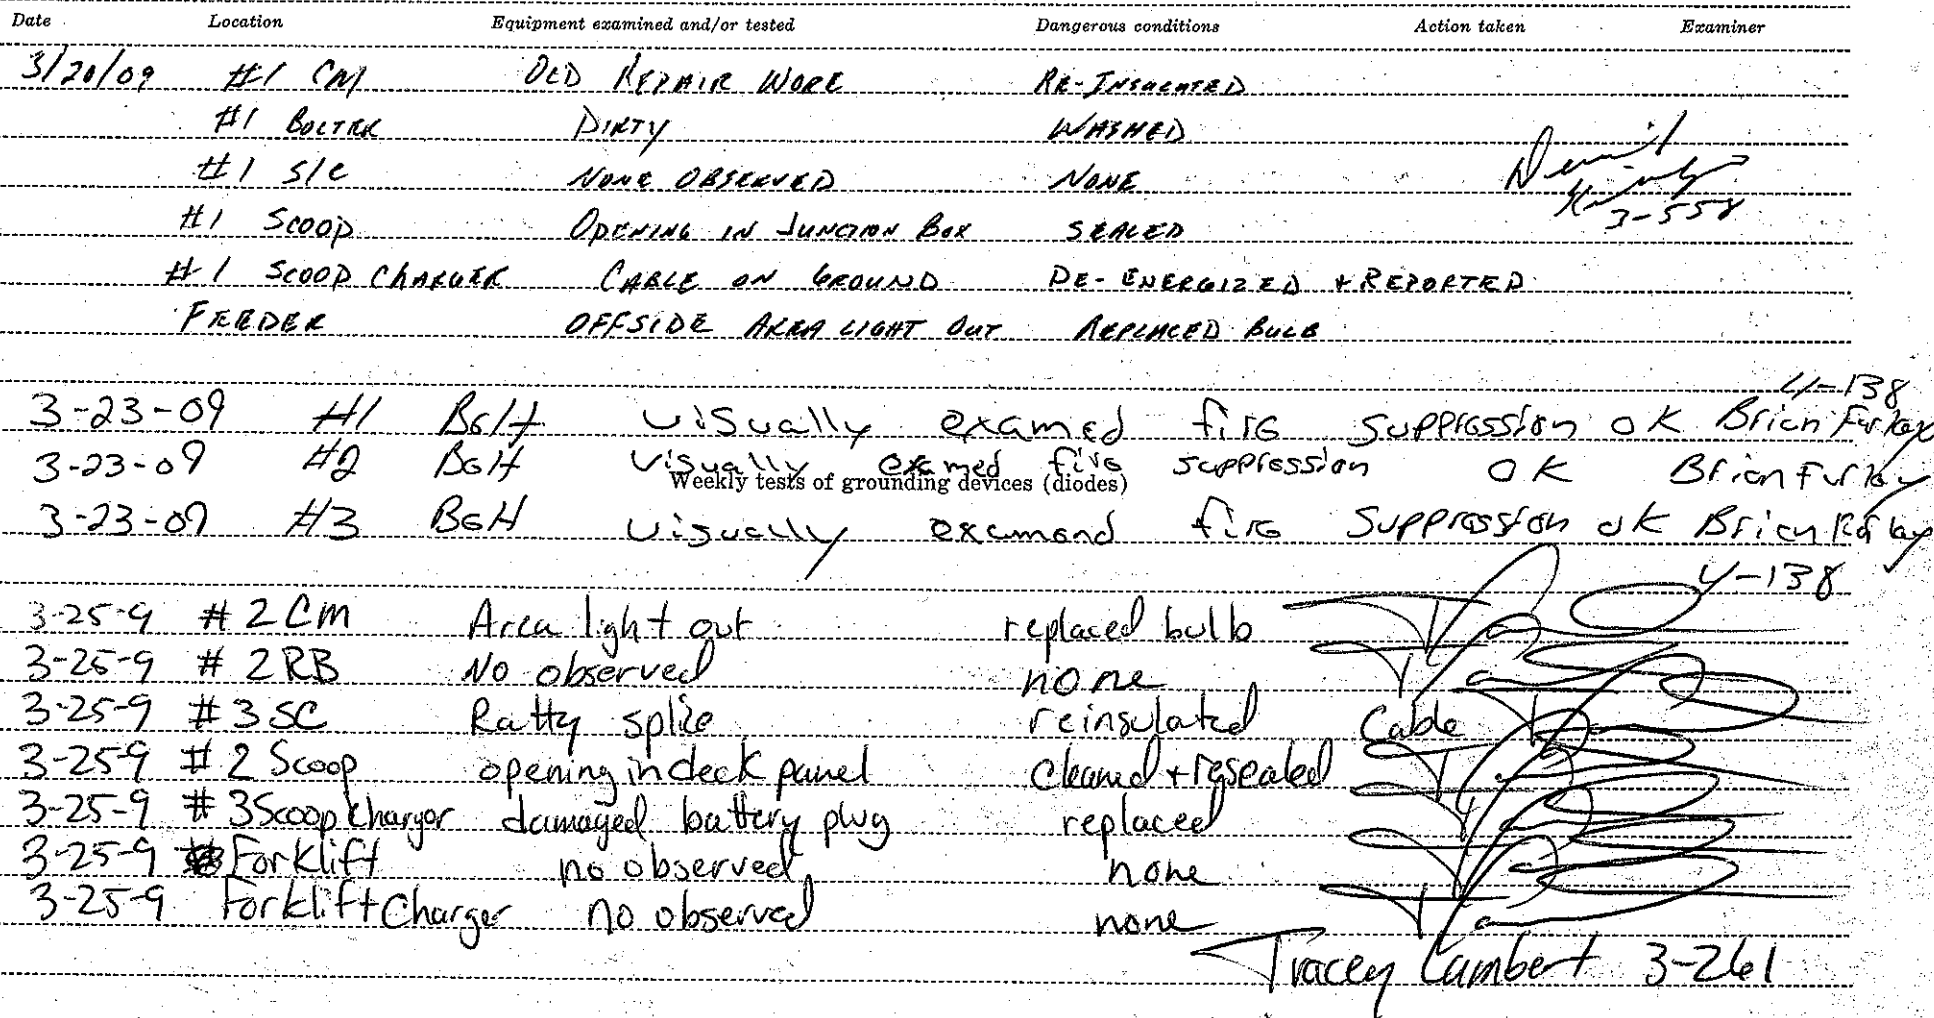 Date Location Equipment examined and/or tested Dangerous conditions Action taken Examiner
3/20/09 #1 CM OLD REPAIR WORK RE-INSULATED
#1 BOLTER DIRTY WASHED
#1 S/C NONE OBSERVED NONE
3-558
#1 SCOOP OPENING IN JUNCTION BOX SEALED
#1 SCOOP CHARGER CABLE ON GROUND DE-ENERGIZED + REPORTED
FEEDER OFFSIDE AREA LIGHT OUT REPLACED BULB
4-138
3-23-09 #1 Belt visually examed fire suppression ok Brian Furlay
3-23-09 #2 Belt visually examed fire suppression OK Brian Furlay
Weekly tests of grounding devices (diodes)
3-23-09 #3 Belt visually examend fire suppression ok Brian
4-138
3-25-9 #2 CM Area light out replaced bulb
3-25-9 #2 RB No observed none
3-25-9 #3 SC Ratty splice reinsulated Cable
3-25-9 #2 Scoop opening in deck panel cleaned + resealed
3-25-9 #3 Scoop Chargor damaged battery plug replaced
3-25-9 Forklift no observed none
3-25-9 Forklift Charger no observed none
Tracey Lambert 3-261